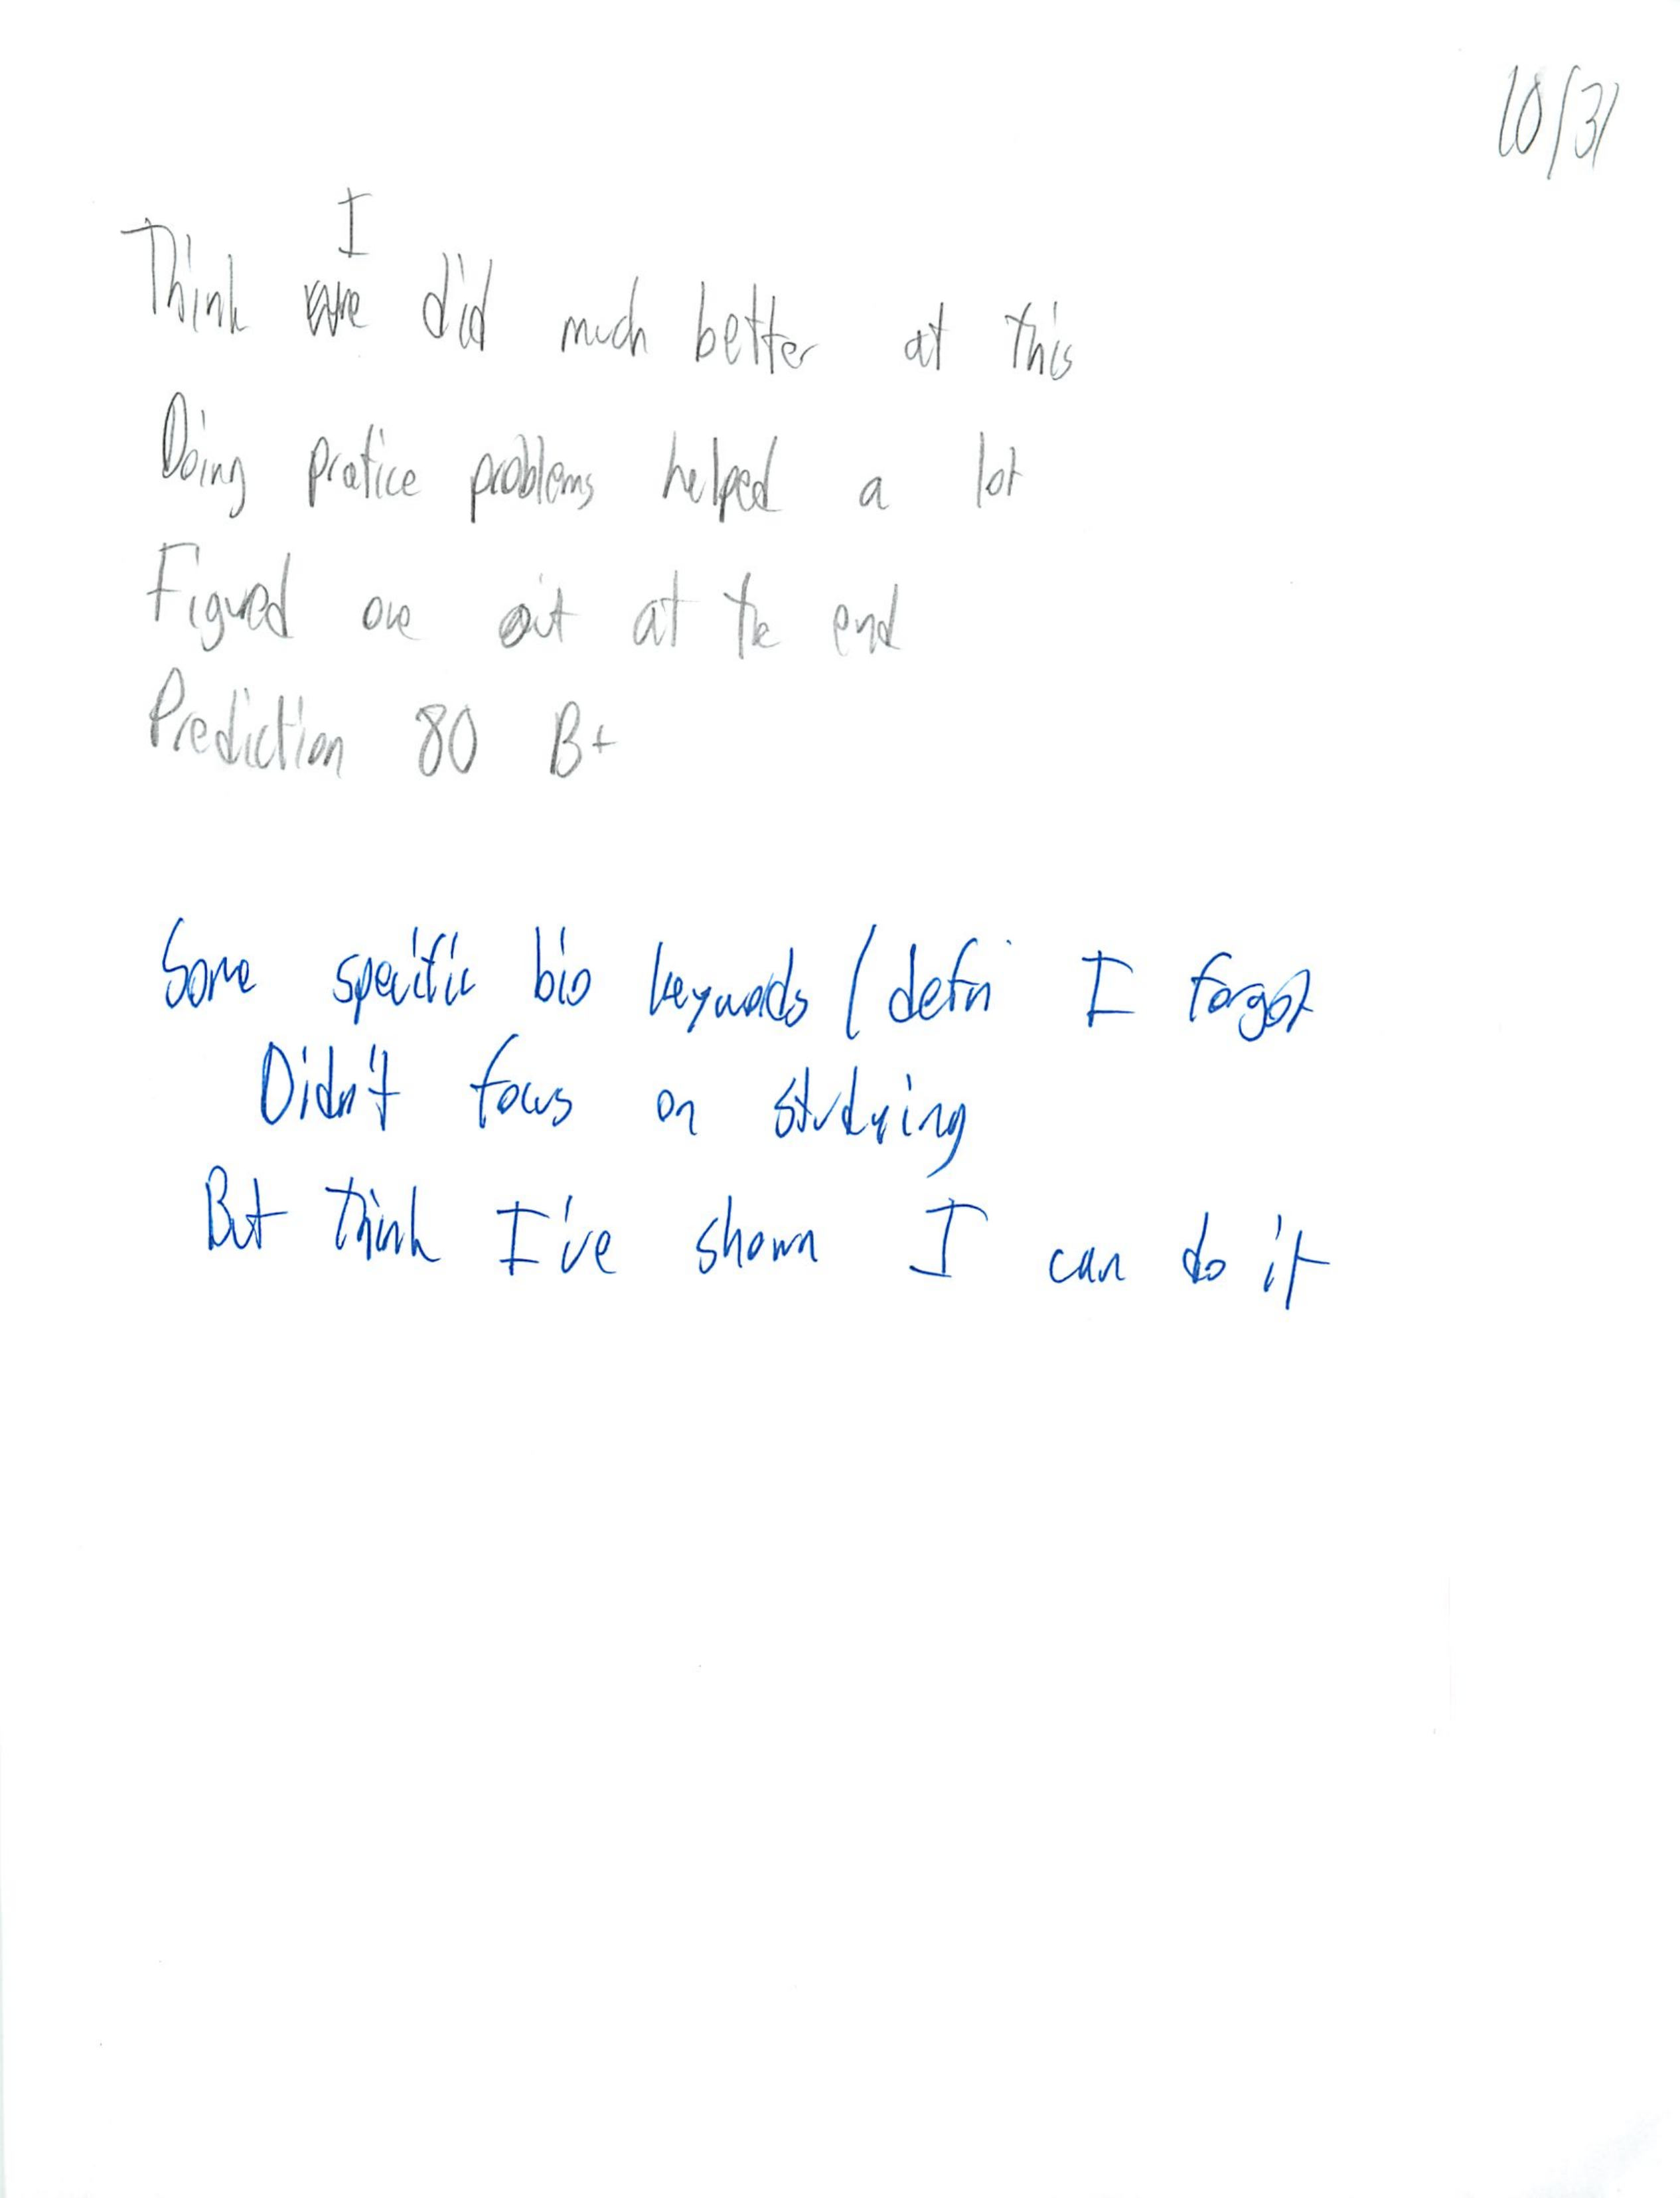 10/31
I
Think we did much better at this
Doing pratice problems helped a lot
Figured one out at the end
Prediction 80 B+
Some specific bio keywords / defn I forgot
Didn't focus on studying
But think I've shown I can do it